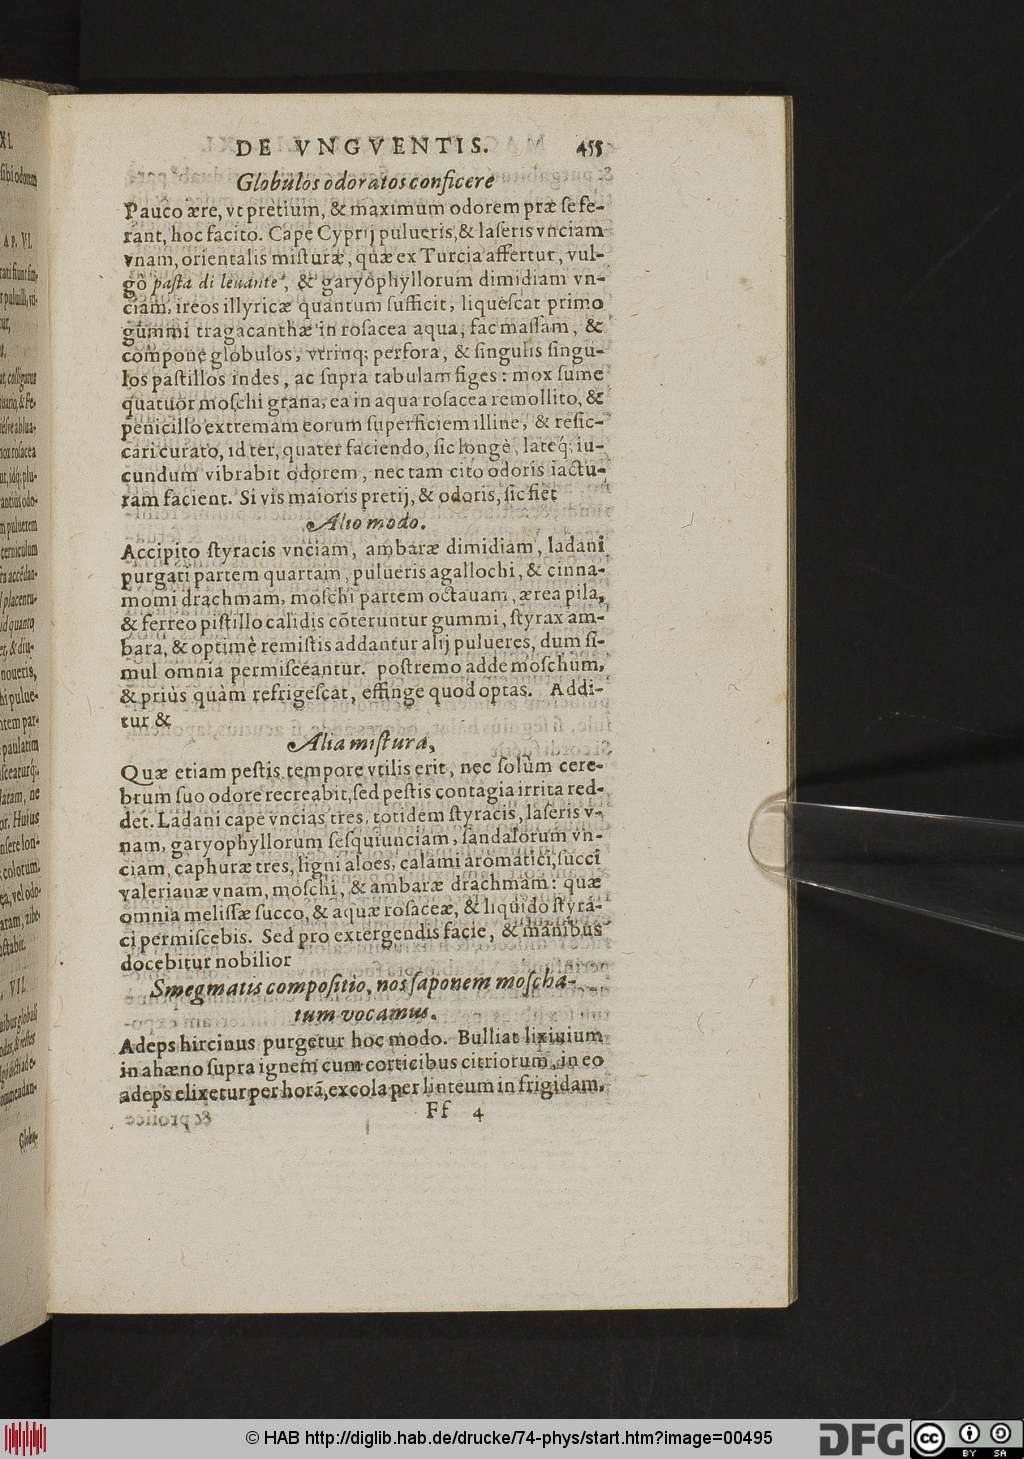 DE VNGVENTIS. 455
Globulos odoratos conficere
Pauco ære, vt pretium, & maximum odorem præ se fe-
rant, hoc facito. Cape Cyprij pulueris, & laseris vnciam
vnam, orientalis misturæ, quæ ex Turcia affertur, vul-
gò pasta di leuante, & garyophyllorum dimidiam vn-
ciam, ireos illyricæ quantum sufficit, liquescat primo
gummi tragacanthæ in rosacea aqua, fac massam, &
compone globulos, vtrinq; perfora, & singulis singu-
los pastillos indes, ac supra tabulam figes: mox sume
quatuor moschi grana, ea in aqua rosacea remollito, &
penicillo extremam eorum superficiem illine, & resic-
cari curato, id ter, quater faciendo, sic longè, lateq́; iu-
cundum vibrabit odorem, nec tam cito odoris iactu-
ram facient. Si vis maioris pretij, & odoris, sic fiet
Alio modo.
Accipito styracis vnciam, ambaræ dimidiam, ladani
purgati partem quartam, pulueris agallochi, & cinna-
momi drachmam, moschi partem octauam, ærea pila,
& ferreo pistillo calidis cõteruntur gummi, styrax am-
bara, & optimè remistis addantur alij pulueres, dum si-
mul omnia permisceantur. postremo adde moschum,
& priùs quàm refrigescat, effinge quod optas. Addi-
tur &
Alia mistura,
Quæ etiam pestis tempore vtilis erit, nec solùm cere-
brum suo odore recreabit, sed pestis contagia irrita red-
det. Ladani cape vncias tres, totidem styracis, laseris v-
nam, garyophyllorum sesquiunciam, sandalorum vn-
ciam, caphuræ tres, ligni aloes, calami aromatici, succi
valerianæ vnam, moschi, & ambaræ drachmam: quæ
omnia melissæ succo, & aquæ rosaceæ, & liquido styra-
ci permiscebis. Sed pro extergendis facie, & manibus
docebitur nobilior
Smegmatis compositio, nos saponem moscha-
tum vocamus.
Adeps hircinus purgetur hoc modo. Bulliat lixiuium
in ahæno supra ignem cum corticibus citriorum, in eo
adeps elixetur per horã, excola per linteum in frigidam,
Ff 4
© HAB http://diglib.hab.de/drucke/74-phys/start.htm?image=00495
DFG
cc BY SA